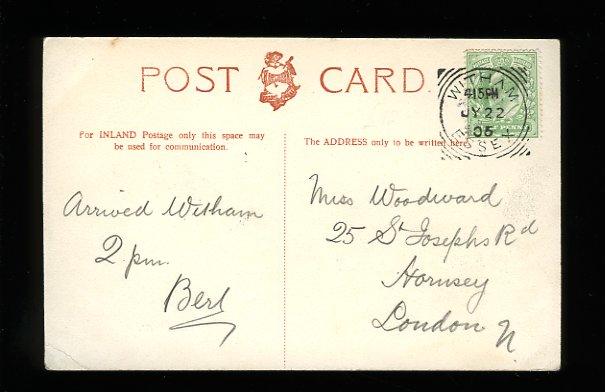 POST CARD.
For INLAND Postage only this space may
be used for communication.
The ADDRESS only to be written here.
WITHAM
4.15PM
JY 22
06
ESSEX
Arrived Witham
2 pm.
Bert
Miss Woodward
25 St Josephs Rd
Hornsey
London N